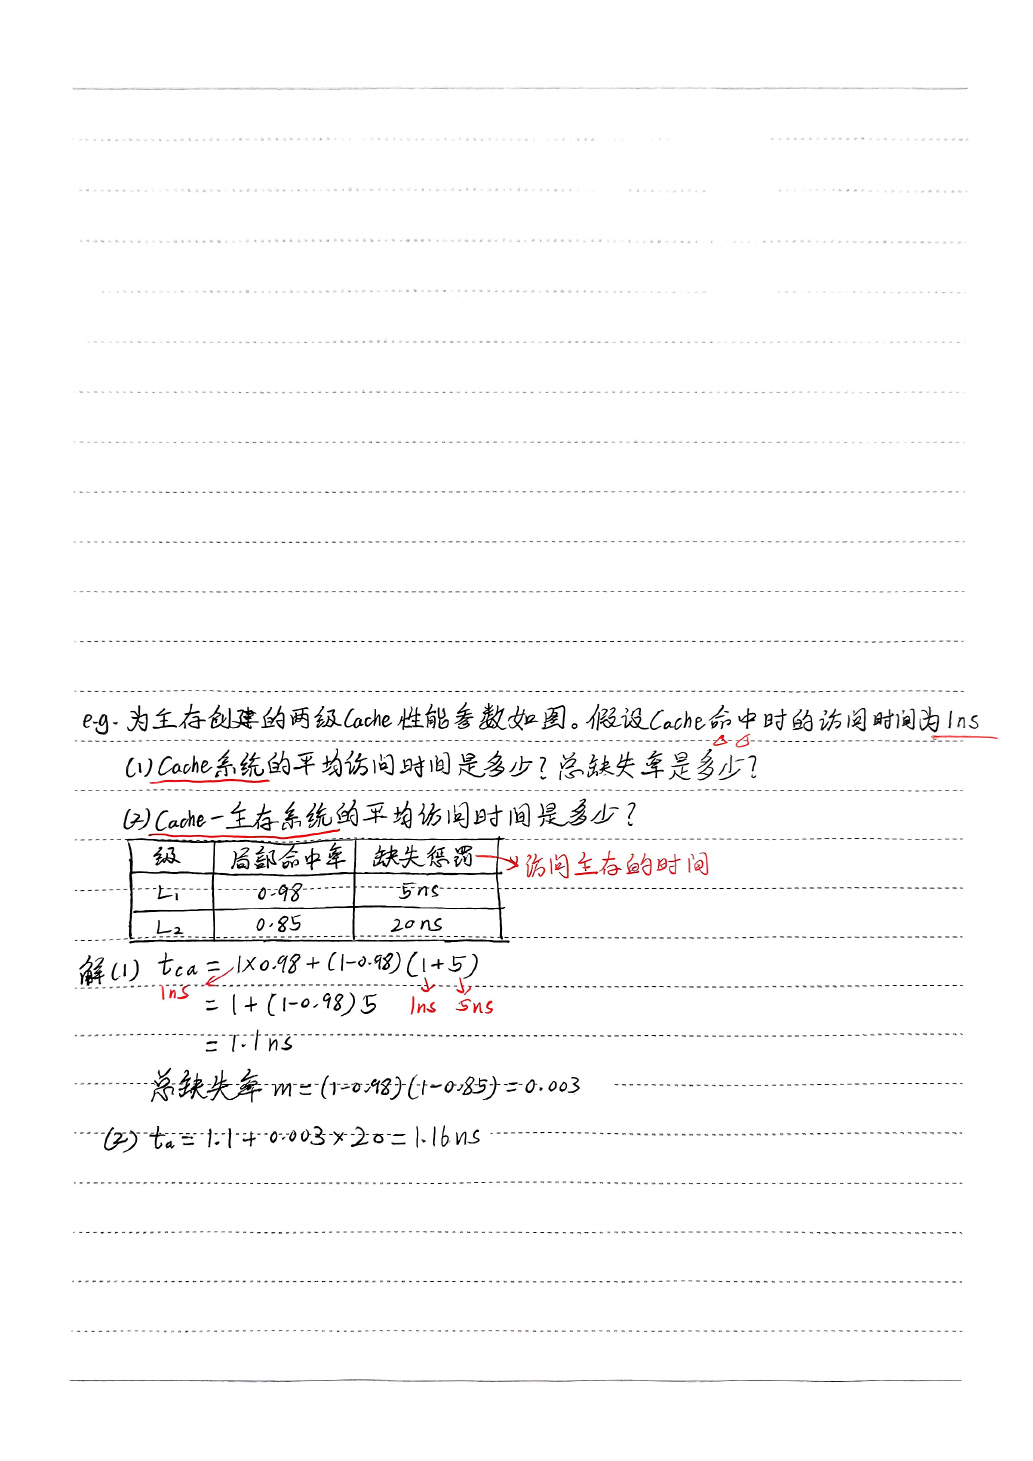 e.g. 为主存创建的两级Cache性能参数如图。假设Cache命中时的访问时间为1ns
(1) Cache系统的平均访问时间是多少？总缺失率是多少？
(2) Cache-主存系统的平均访问时间是多少？
级 局部命中率 缺失惩罚 → 访问主存的时间
L₁ 0.98 5ns
L₂ 0.85 20ns
解(1) tca = 1×0.98+(1-0.98)(1+5)
1ns
= 1+(1-0.98)5 1ns 5ns
= 1.1ns
总缺失率 m=(1-0.98)(1-0.85)=0.003
(2) ta = 1.1+0.003×20=1.16ns